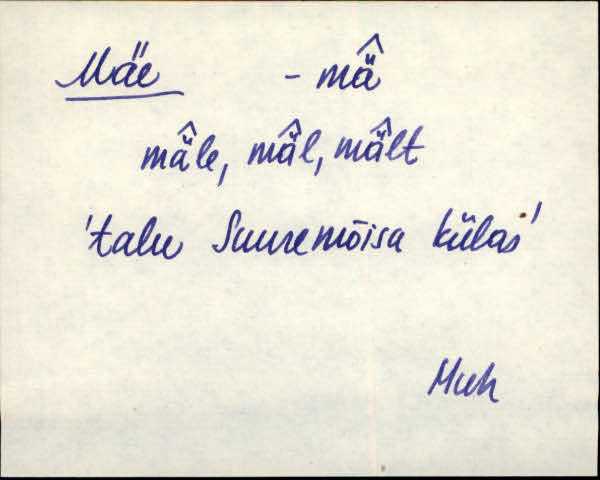 Mäe - mä̂
mä̂le, mä̂l, mä̂lt
'talu Suuremõisa külas'
Muh